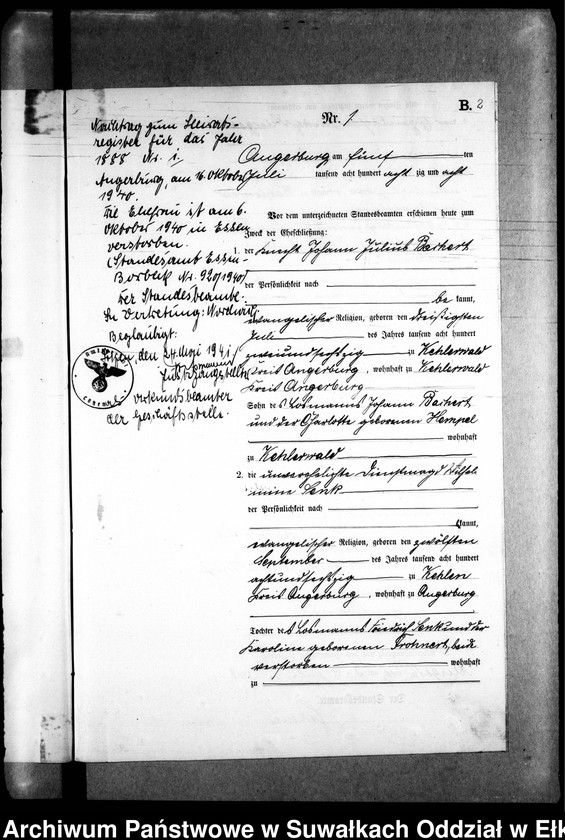 B. 2
Nr. 1
Nachtrag zum Heirats-
register für das Jahr
1888 Nr. 1.
Angerburg, am 16. Oktober
1940.
Die Ehefrau ist am 6.
Oktober 1940 in Essen
verstorben.
(Standesamt Essen-
Borbeck Nr. 920/1940)
Der Standesbeamte.
In Vertretung:
Beglaubigt:
den 24. 1941
Justizangestellter
der Geschäftsstelle.
Angerburg am fünf ten
Juli tausend acht hundert acht zig und acht
Vor dem unterzeichneten Standesbeamten erschienen heute zum
Zweck der Eheschließung:
1. der Knecht Johann Julius Barhert
der Persönlichkeit nach
be kannt,
evangelischer Religion, geboren den dreißigsten
Juli des Jahres tausend acht hundert
zweiundsechzig zu Kehlerwald
Kreis Angerburg, wohnhaft zu Kehlerwald
Kreis Angerburg
Sohn des Losmanns Johann Barhert
und der Charlotte geborenen Hempel
wohnhaft
zu Kehlerwald
2. die unverehelichte Dienstmagd Wilhel
mine Senk
der Persönlichkeit nach
kannt,
evangelischer Religion, geboren den zwölften
September des Jahres tausend acht hundert
achtundsechzig zu Kehlen
Kreis Angerburg, wohnhaft zu Angerburg
Tochter des Losmanns Friedrich Senk und der
Karoline geborenen Frohnert, beide
verstorben wohnhaft
zu
Archiwum Państwowe w Suwałkach Oddział w Ełk